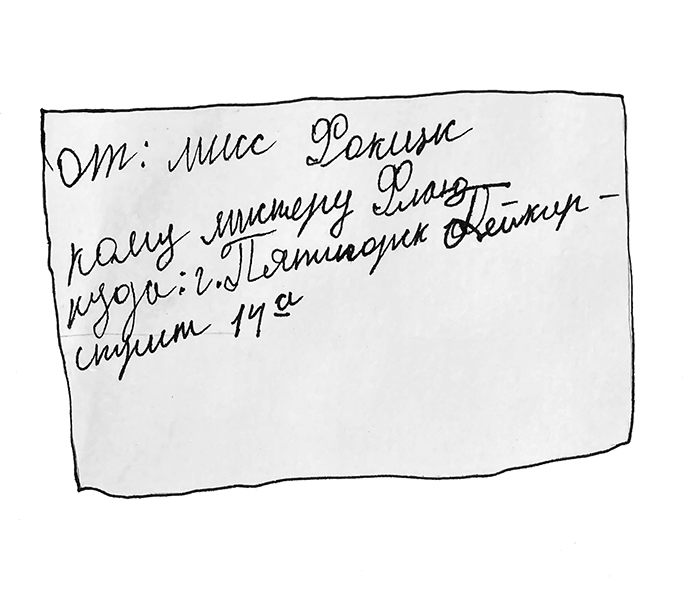 от: мисс Фокиук
кому мистеру Флаю
куда: г. Пятигорск Бейкир-
стрит 14а